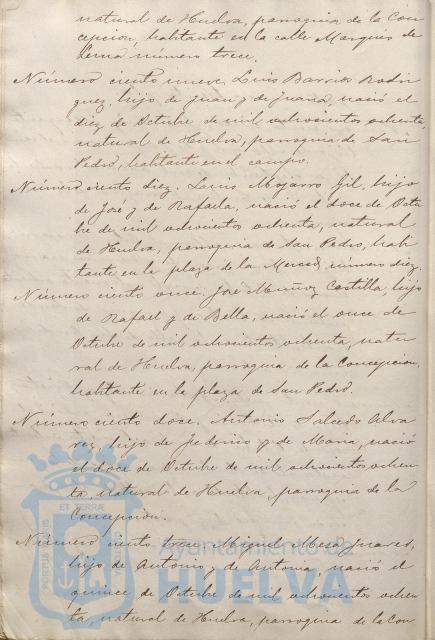 natural de Huelva, parroquia de la Con
cepcion, habitante en la calle Marqués de
Lerma número trece.
Número ciento nueve, Luis Barrios Rodri
guez, hijo de Juan y de Juana, nació el
diez de Octubre de mil ochocientos ochenta,
natural de Huelva, parroquia de San
Pedro, habitante en el campo.
Número ciento diez. Luis Mojarro Gil, hijo
de José y de Rafaela, nació el doce de Octu
bre de mil ochocientos ochenta, natural
de Huelva, parroquia de San Pedro, habi
tante en la plaza de la Merced, número diez.
Número ciento once. José Muñoz Castilla, hijo
de Rafael y de Bella, nació el once de
Octubre de mil ochocientos ochenta, natu
ral de Huelva, parroquia de la Concepcion,
habitante en la plaza de San Pedro.
Número ciento doce. Antonio Salcedo Alva
rez, hijo de Federico y de Maria, nació
el doce de Octubre de mil ochocientos ochen
ta, natural de Huelva, parroquia de la
Concepcion.
Número ciento trece. Miguel Mesa Juares,
hijo de Antonio y de Antonia, nació el
quince de Octubre de mil ochocientos ochen
ta, natural de Huelva, parroquia de la Con
PORTUS MARIS
ET TERRÆ
CUSTODIA
Ayuntamiento de
HUELVA